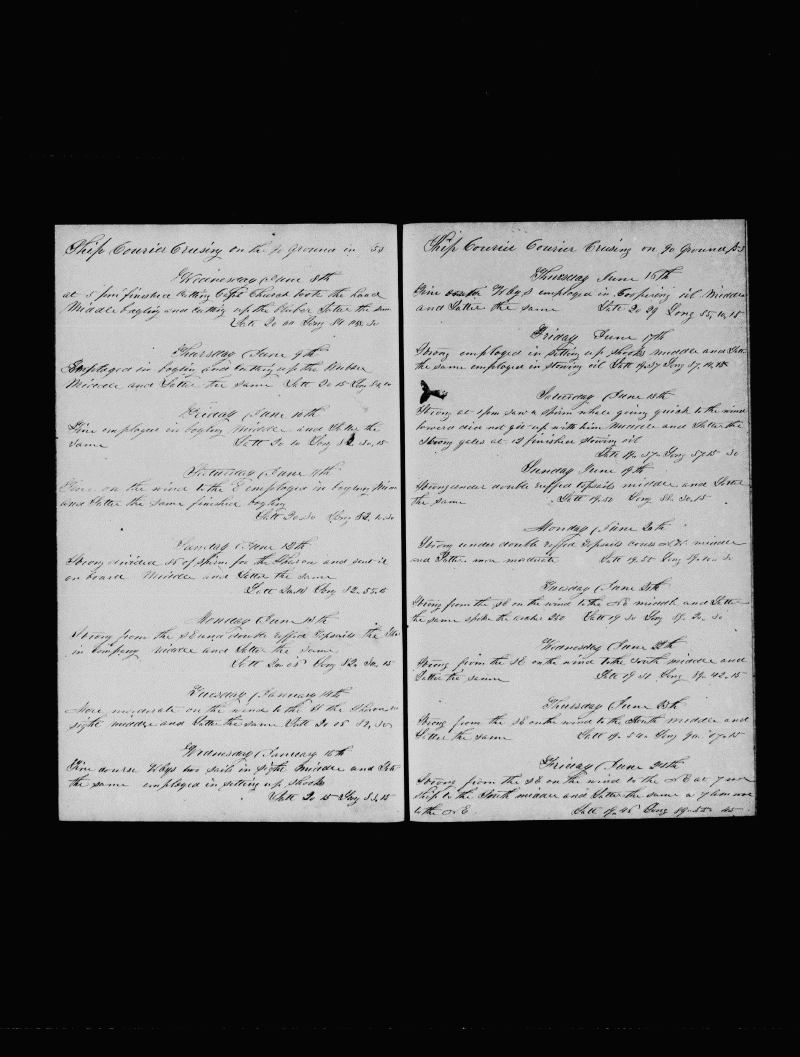 Ship Courier Crusing on the Jo Ground in 53
Wednesday June 8th
at 5 pm finished Cutting Capt Church took the head
Middle boyling and cutting up the bluber Latter the same
Latt 20 Long 84
Thursday June 9th
Employed in boylin and cutting up the bluber
Middle and Latter the same Latt 20 15 Long
Friday June 10th
Fine employed in boyling Middle and Latter the
same Latt 20 10 Long 82 30, 15
Saturday June 11th
Fine on the wind to the E employed in boyling
and Latter the same finished boyling
Latt 20 30 Long 82
Sunday June 12th
Strong divided of sperm for the Sharon and sent it
on board Middle and Latter the same
Latt Long 82 55
Monday June 13th
Strong from the SE under double reffed topsails the
in company Middle and Latter the same
Latt 20 05 Long 82 30, 15
Tuesday January 14th
More moderate on the wind to the the Sharon in
sight middle and Latter the same Latt 20 05 82, 30
Wednesday January 15th
Fine course WbyS two sails in sight middle and Latt
the same employed in setting up shooks
Latt 20 15 Long 83, 15
Ship Courier Courier Crusing on Jo Ground 53
Thursday June 16th
Fine WbyS employed in Coopering oil Middle
and Latter the same Latt 20 29 Long 85, 10, 15
Friday June 17th
Strong employed in setting up shooks middle and Latt
the same employed in stowing oil Latt 19.37 Long 87, 10, 15
Saturday June 18th
Strong at 1pm saw a sperm whale going quick to the wind
lowered did not git up with him Middle and Latter the
Strong gales at 12 finished stowing oil
Latt 19. 37 Long 87 15 30
Sunday June 19th
Strong under double reffed topsails middle and Latter
the same Latt 19.50 Long 88. 30.15
Monday June 20th
Strong under double reffed topsails course middle
and Latter more moderate Latt 19. 55 Long
Tuesday June 21th
Strong from the SE on the wind to the NE middle and Latter
the same spoke the 250 Latt 19 30 Long 89. 20. 30
Wednesday June 22th
Strong from the SE on the wind to the South middle and
Latter the same Latt 19 31 Long 89. 42. 15
Thursday June 23th
Strong from the SE on the wind to the South middle and
Latter the same Latt 19. 54 Long 90. 07. 15
Friday June 24th
Strong from the SE on the wind to the NE at 7 wore
ship to the South middle and Latter the same a 7 am wore
to the NE Latt 19. 46 Long 89. 55. 45